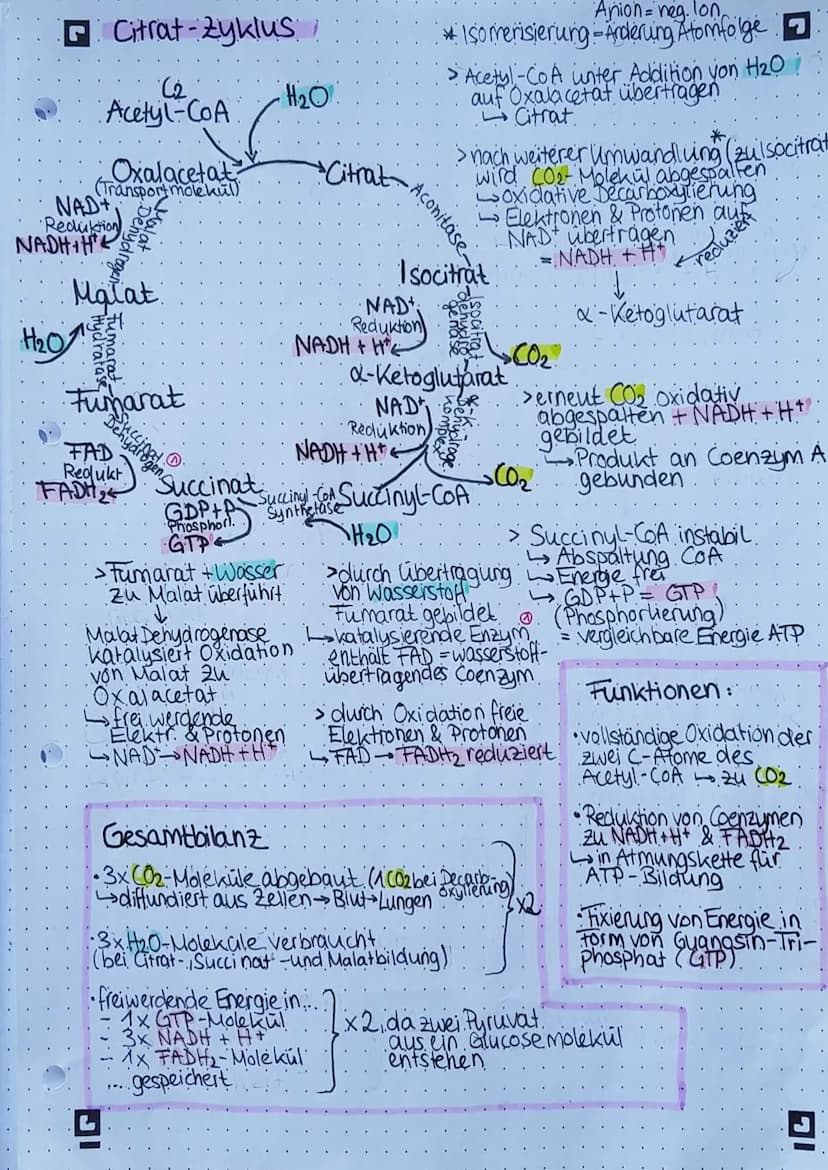 Citrat-Zyklus
Anion = neg. Ion
* Isomerisierung = Änderung Atomfolge
C2
Acetyl-CoA
H2O
Oxalacetat
(Transportmolekül)
Citrat
Aconitase
Isocitrat
Isocitrat-
dehydro
genase
NAD+
Reduktion
NADH + H+
CO2
α-Ketoglutarat
α-K-
dehydroge.
Komplex
NAD+
Reduktion
NADH + H+
CO2
Succinyl-CoA
Succinyl-CoA
Synthetase
H2O
Succinat
GDP+P
Phosphorl.
GTP
Succinat
Dehydrogen.
①
FAD
Redukt
FADH2
Fumarat
Fumarat
Hydratase
H2O
Malat
Malat
Dehydrogen.
NAD+
Reduktion
NADH+H+
> Acetyl-CoA unter Addition von H2O
auf Oxalacetat übertragen
↳ Citrat
> nach weiterer Umwandlung* (zu Isocitrat
wird CO2-Molekül abgespalten
↳ Oxidative Decarboxylierung
↳ Elektronen & Protonen auf
NAD+ übertragen
= NADH + H+
reduziert
↓
α-Ketoglutarat
> erneut CO2 oxidativ
abgespalten + NADH + H+
gebildet
↳ Produkt an Coenzym A
gebunden
> Succinyl-CoA instabil
↳ Abspaltung CoA
↳ Energie frei
↳ GDP+P = GTP
(Phosphorlierung)
= vergleichbare Energie ATP
> Fumarat + Wasser
zu Malat überführt
↓
Malat Dehydrogenase
katalysiert Oxidation
von Malat zu
Oxalacetat
↳ frei werdende
Elektr. & Protonen
↳ NAD+→ NADH + H+
> durch Übertragung
von Wasserstoff
Fumarat gebildet ①
↳ katalysierende Enzym
enthält FAD = wasserstoff-
übertragendes Coenzym
> durch Oxidation freie
Elektronen & Protonen
↳ FAD → FADH2 reduziert
Funktionen:
• vollständige Oxidation der
zwei C-Atome des
Acetyl-CoA ↳ zu CO2
• Reduktion von Coenzymen
zu NADH+H+ & FADH2
↳ in Atmungskette für
ATP-Bildung
• Fixierung von Energie in
Form von Guanosin-Tri-
phosphat (GTP)
Gesamtbilanz
• 3x CO2-Moleküle abgebaut (1 CO2 bei Decarb-
oxylierung)
↳ diffundiert aus Zellen → Blut → Lungen
• 3x H2O-Moleküle verbraucht
(bei Citrat-, Succinat- und Malatbildung)
x2
• freiwerdende Energie in...
- 1x GTP-Molekül
- 3x NADH + H+
- 1x FADH2-Molekül
... gespeichert
x2, da zwei Pyruvat
aus ein Glucosemolekül
entstehen